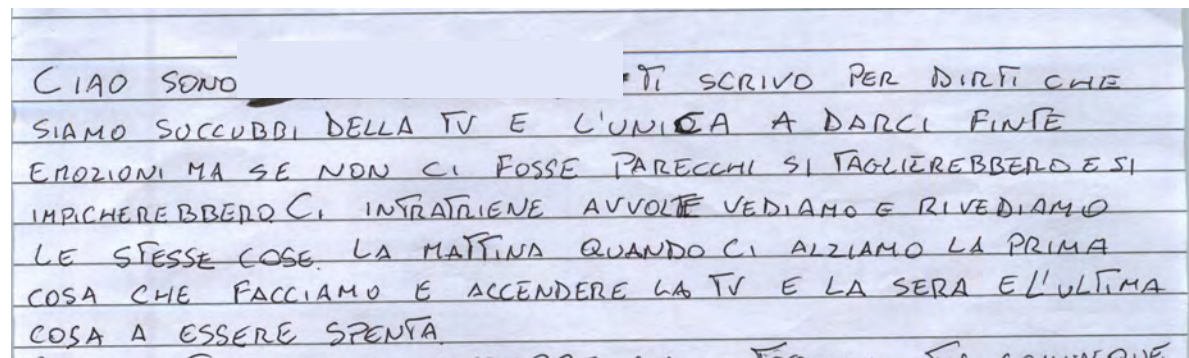 CIAO SONO TI SCRIVO PER DIRTI CHE
SIAMO SUCCUBBI DELLA TV E L'UNICA A DARCI FINTE
EMOZIONI MA SE NON CI FOSSE PARECCHI SI TAGLIEREBBERO E SI
IMPICHEREBBERO. CI INTRATRIENE AVVOLTE VEDIAMO E RIVEDIAMO
LE STESSE COSE. LA MATTINA QUANDO CI ALZIAMO LA PRIMA
COSA CHE FACCIAMO E ACCENDERE LA TV E LA SERA E L'ULTIMA
COSA A ESSERE SPENTA.